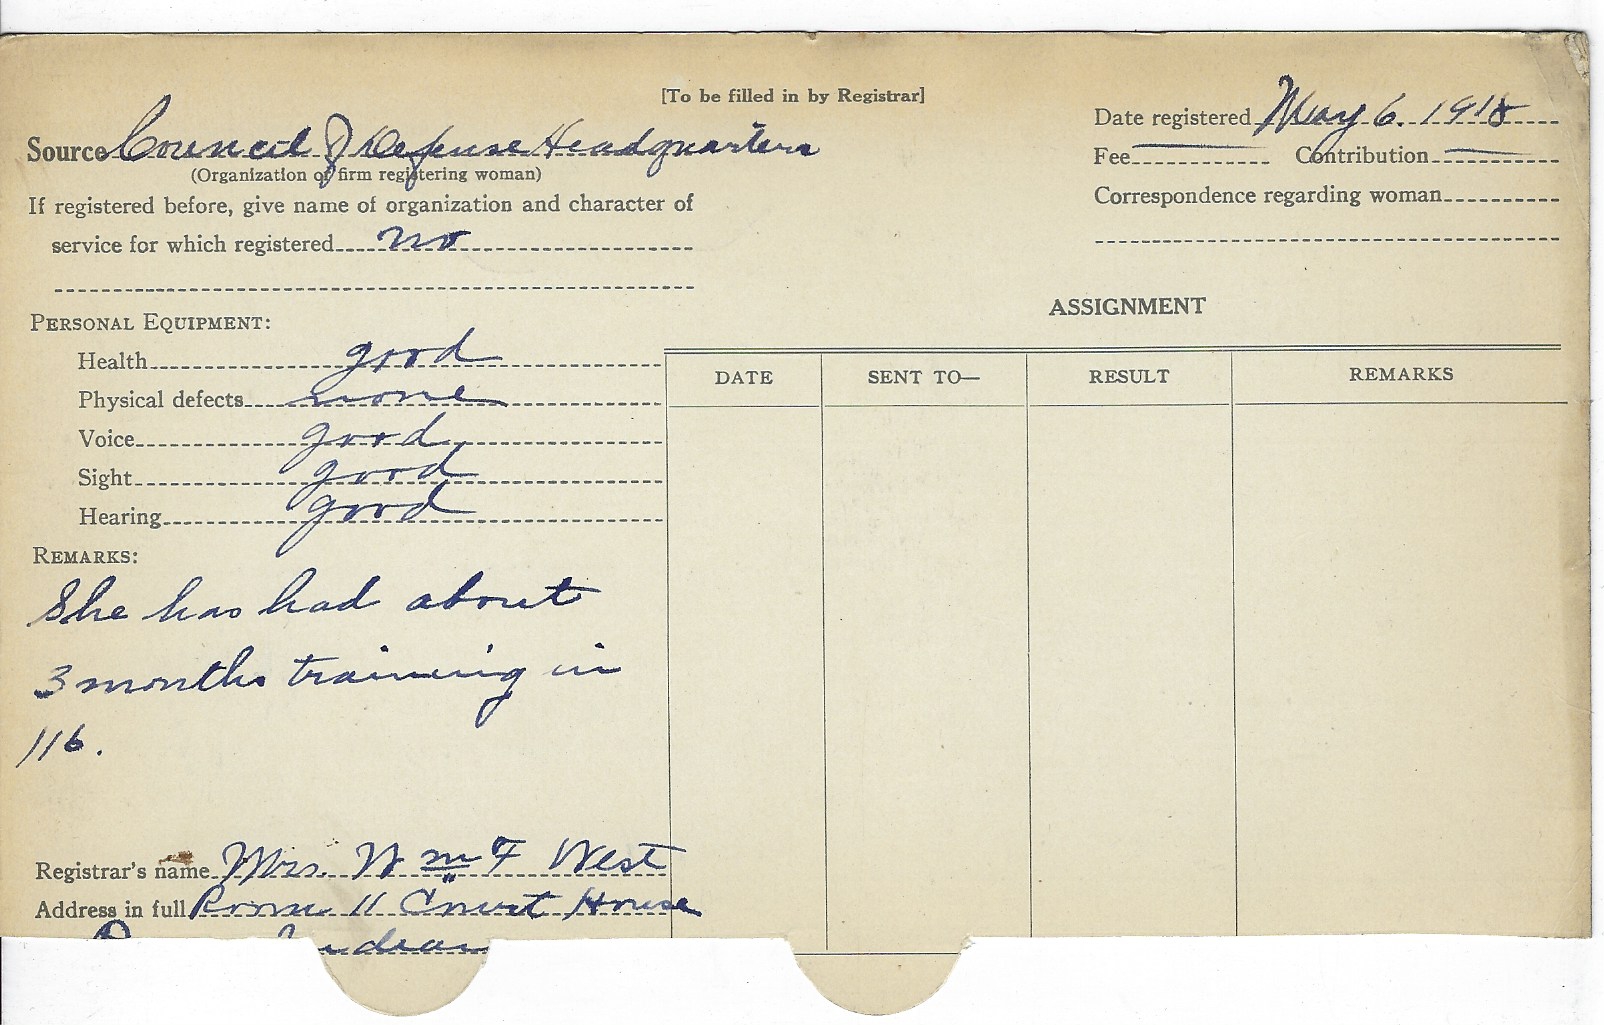 [To be filled in by Registrar]
Source Council of Defense Headquarters
(Organization or firm registering woman)
If registered before, give name of organization and character of
service for which registered no
Date registered May 6. 1918
Fee Contribution
Correspondence regarding woman
PERSONAL EQUIPMENT:
Health good
Physical defects none
Voice good
Sight good
Hearing good
REMARKS:
She has had about
3 months training in
116.
Registrar's name Mrs. Wm F West
Address in full Room 11 Court House
ASSIGNMENT
DATE SENT TO— RESULT REMARKS